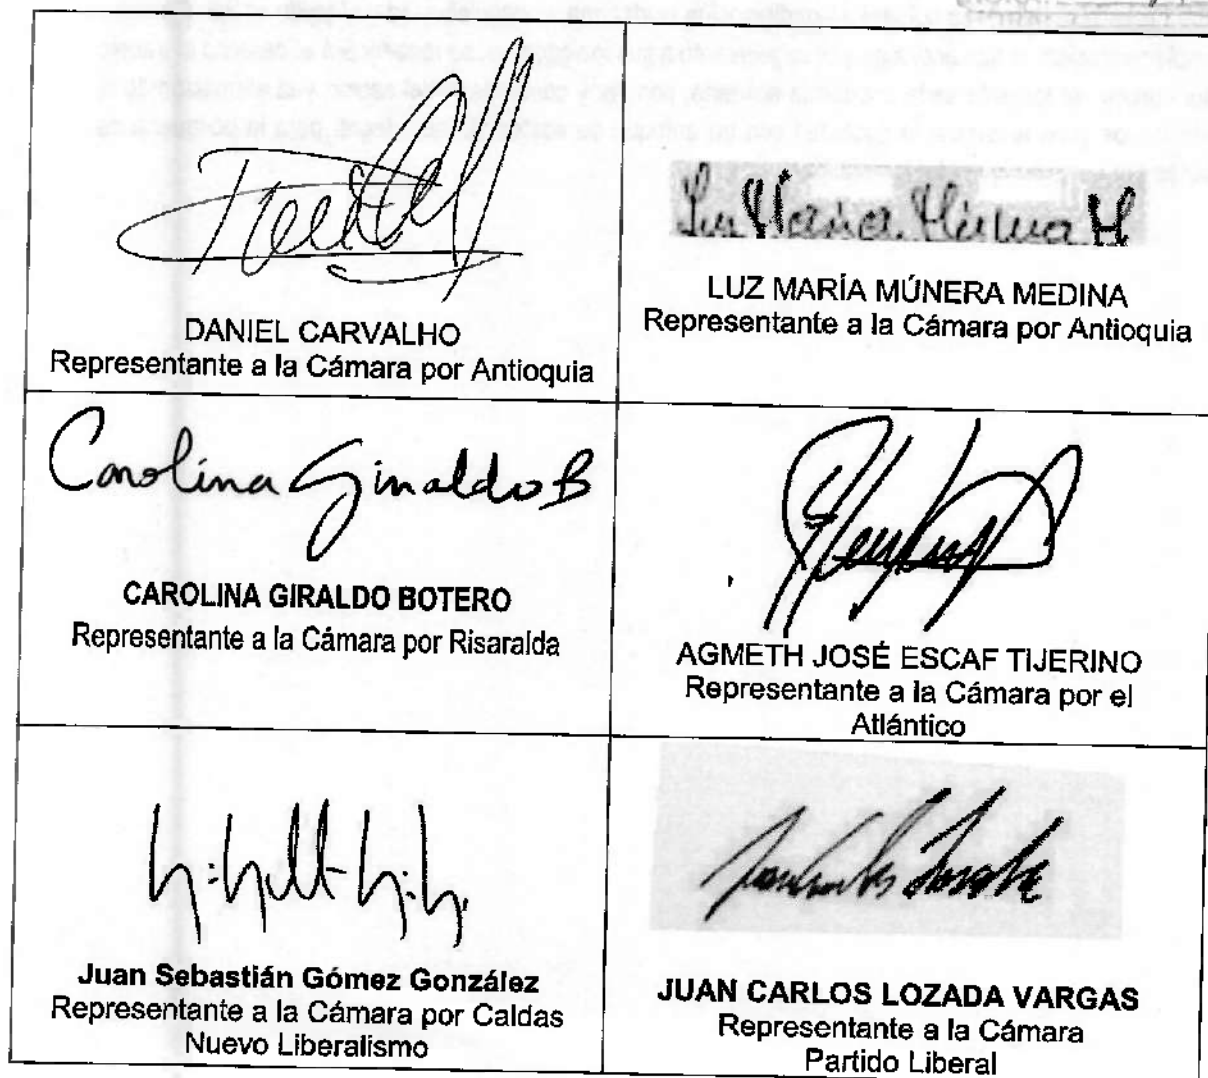 DANIEL CARVALHO
Representante a la Cámara por Antioquia
Luz María Múnera M
LUZ MARÍA MÚNERA MEDINA
Representante a la Cámara por Antioquia
Carolina Giraldo B
CAROLINA GIRALDO BOTERO
Representante a la Cámara por Risaralda
AGMETH JOSÉ ESCAF TIJERINO
Representante a la Cámara por el
Atlántico
Juan Sebastián Gómez González
Representante a la Cámara por Caldas
Nuevo Liberalismo
JUAN CARLOS LOZADA VARGAS
Representante a la Cámara
Partido Liberal